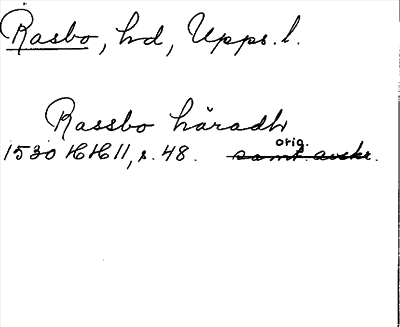 Rasbo, hd, Upps. l.
Rassbo häradh
orig.
1530 HH 11, s. 48. samt. avskr.